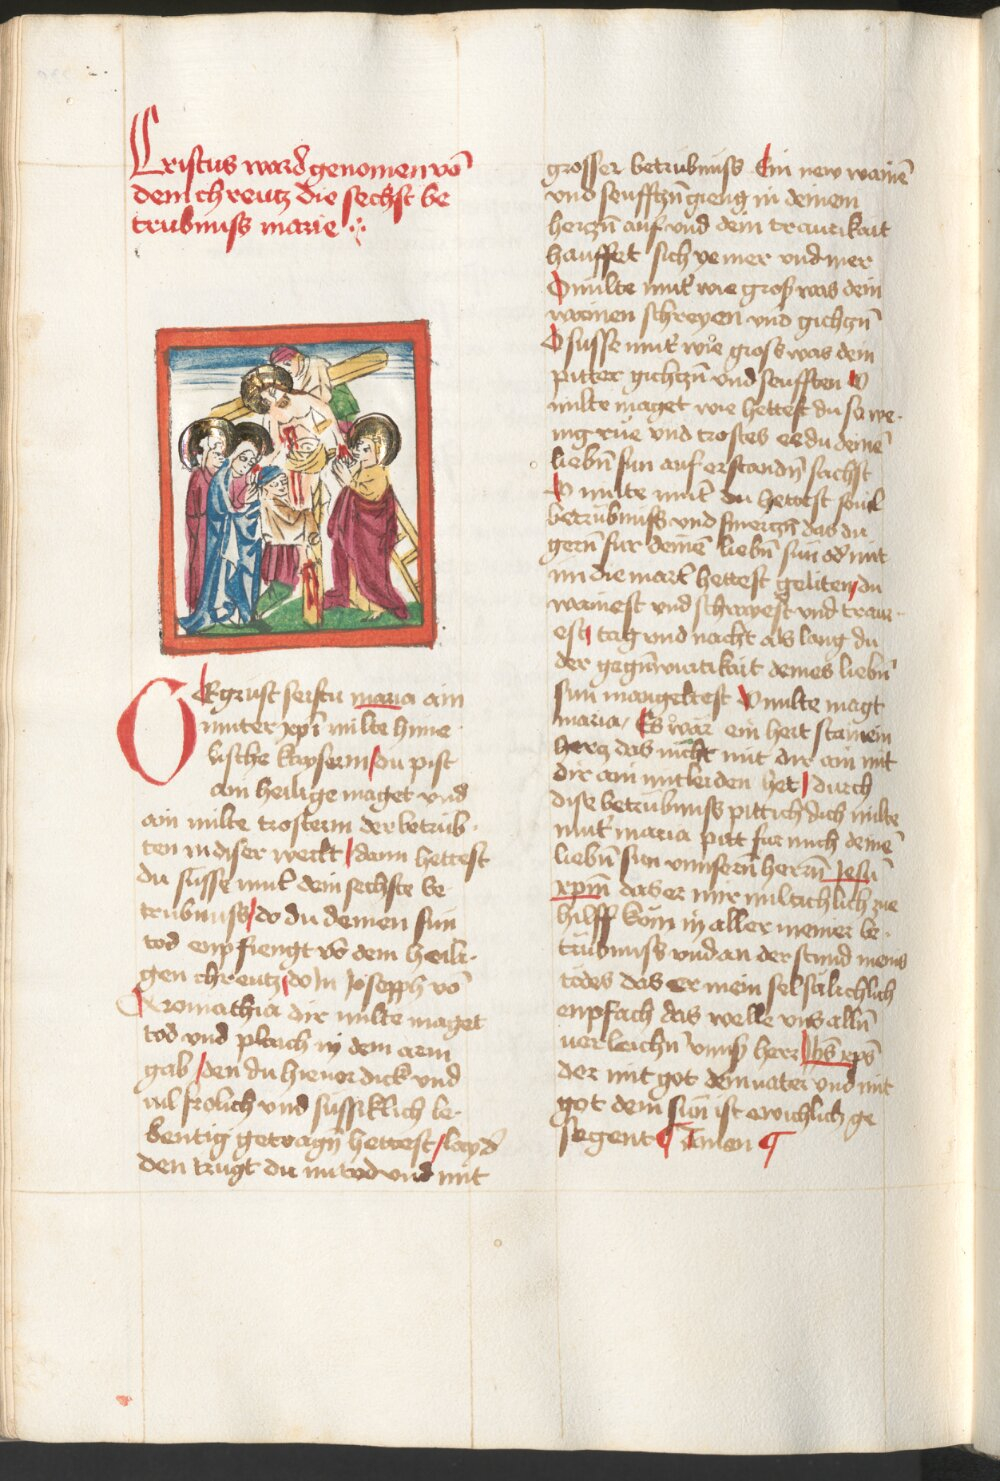 Cristus ward genomen vō
dem chreutz die sechst be
trubnuss marie
Gegrust seistu maria ain
muter xp̄i milte hime
lische kayserin / du pist
ain heilige maget vnd
ain milte trosterin der betrub-
ten in diser werlt / dann hettest
du süsse mut̄ dein sechste be-
trubnuss / do du deinen sun
tod enpfiengt vō dem heili-
gen chreutz / do In Joseph vō
Aromathia dir milte maget
tod vnd plaich in dein arm
gab / den du hieuor dick vnd
vil frolich vnd süssiklich le-
bentig getragn̄ hettest / layd
den trugt du in tod vnd mit
grosser betrubnuss Ein new wainē
vnd seufftzn̄ gieng in deinem
hertzn̄ auf vnd dein traurikait
hauffet sich yemer vnd mer
O milte mut̄ wie groß was dein
wainen schreyen vnd gichtzn̄
O süsse mut̄ wie gross was dein
pitter gichtzn̄ vnd seufften O
milte maget wie hettest du so we-
nig rue vnd trostes ee du deinē
liebn̄ sun auf erstandn̄ sachst
O milte mut̄ du hettest souil
betrübnuss vnd smertzn̄ das du
gern̄ fur deinē liebn̄ sun od̄ mit
im die mart̄ hettest geliten / du
wainest vnd schrayest vnd traur-
est / tag vnd nacht als lang du
der gegn̄wurtikait deines liebn̄
sun mangeltest O milte magt
maria / Es wär ein hert stainein
hertz das nicht mit dir ain mit
dir ain mitleiden het / durch
dise betrübnuss pitt ich dich milte
mut̄ maria pitt fur mich deinē
liebn̄ sun vnnsern̄ herrn̄ Jesū
xpm̄ das er mir miltichlich zue
hilff kom in aller meiner be-
trubnuss vnd an der stund meins
todes das er mein sel säliclich
enpfach das welle vns alln̄
uerleichn̄ vnnß herr Jhs̄ xps̄
der mit got dem vater vnd mit
got dem sun ist ewichlich ge
segent Amen